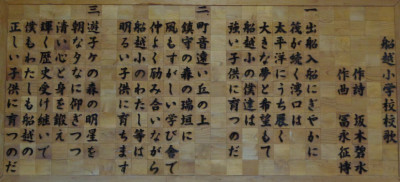 船越小学校校歌
作詩 坂本碧水
作曲 冨永征博
一 出船入船にぎやかに
筏が続く湾口は
太平洋にうち展く
大きな夢と希望もて
船越小の僕達は
強い子供に育つのだ
二 町音遠い丘の上
鎮守の森の瑞垣に
風もすがしい学び舎で
仲よく励み合いながら
船越小のわたし等は
明るい子供に育ちます
三 遊子ヶ森の明星を
朝な夕なに仰ぎつつ
清い心と身を鍛え
輝く歴史受け継いで
僕もわたしも船越の
正しい子供に育つのだ